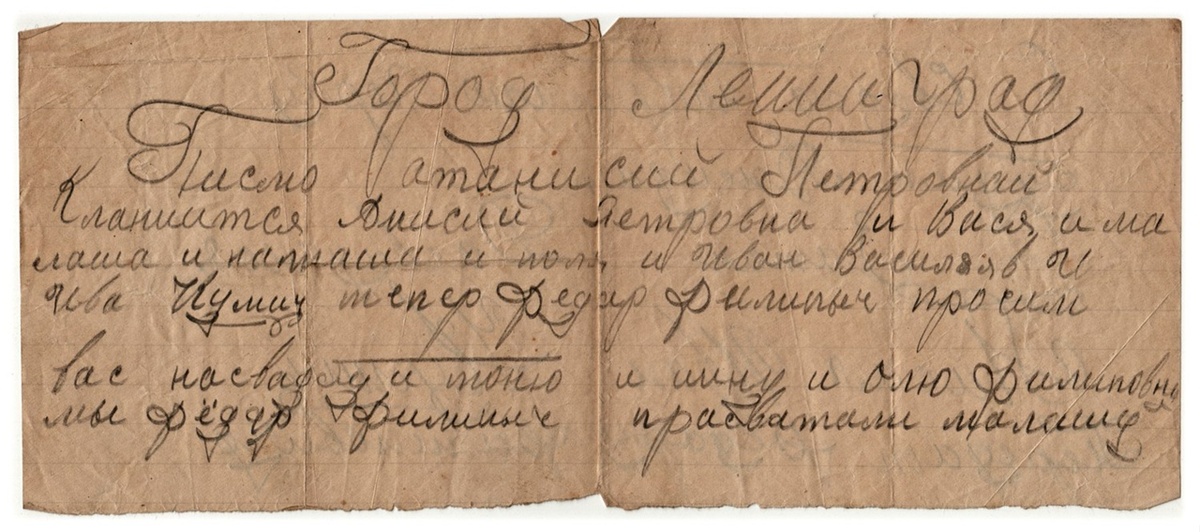 Город Ленинград
Писмо отанисий Петровнай
Кланиится Анисий Петровна и Вася, и ма
лаша и наташа и поля и Иван Василяв И
Ива тепер Федар Филипыч просим
вас насвадбу и тоню и нину и Олю Филиповну
мы Федар Филипыч прасватали малашу